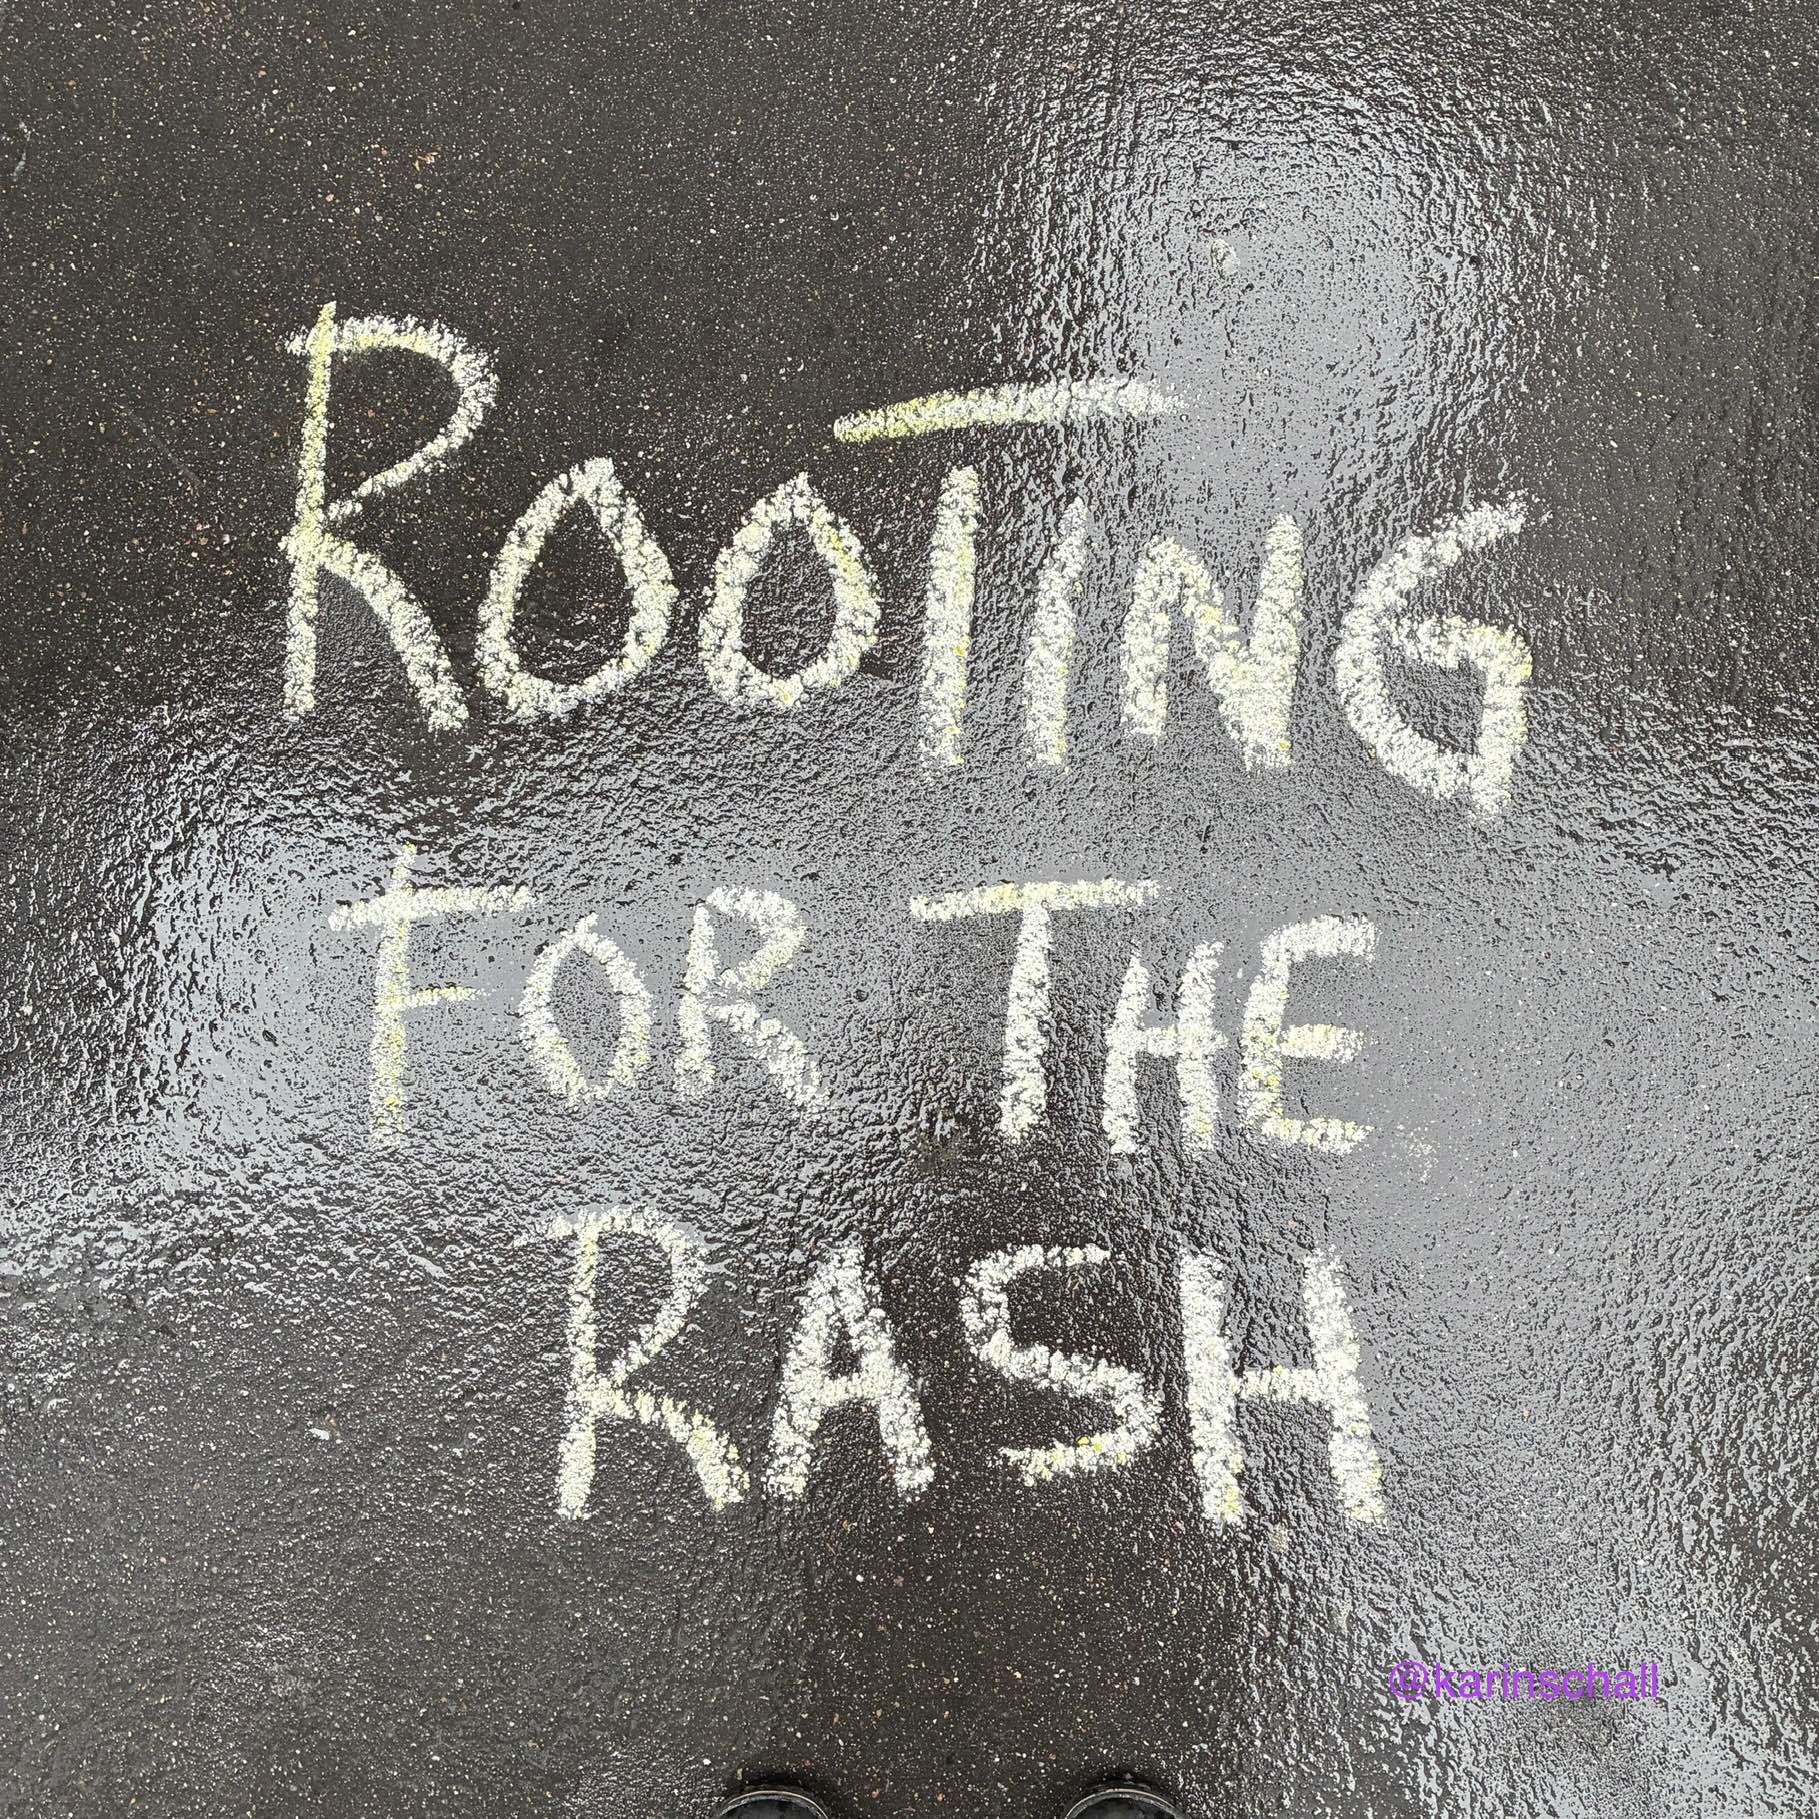 ROOTING
FOR THE
RASH
@karinschall